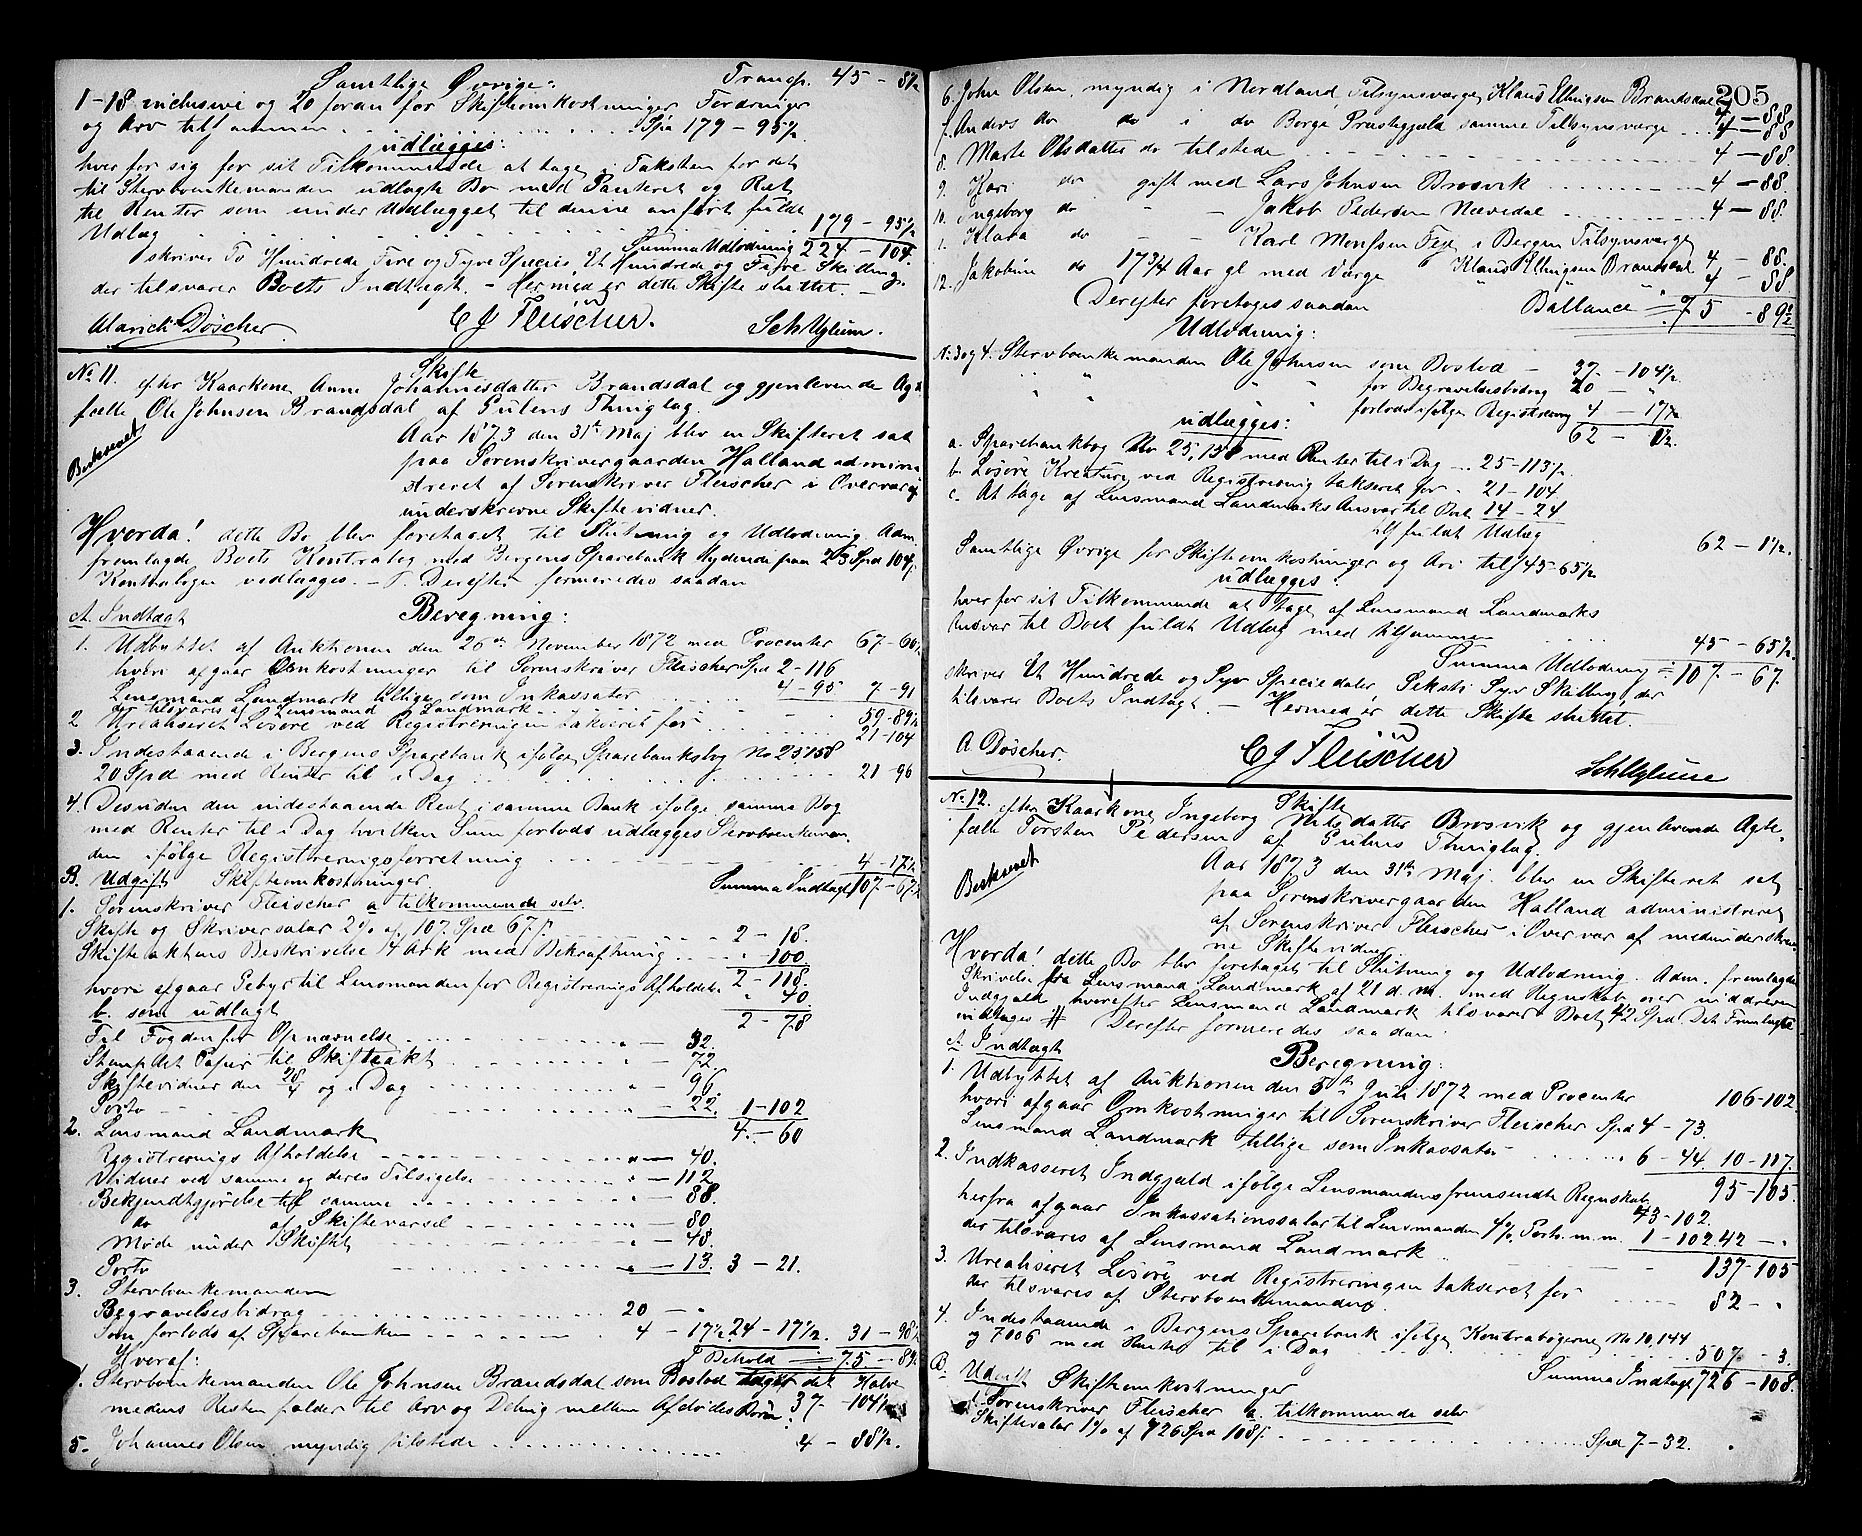 Samtlige Øvrige: Transp. 45 - 8½
1-18 inclusive og 20 foran for Skifteomkostninger Fordringer
og Arv tilsammen . . . Spd 179 - 95½
udlægges:
hver for sig for sit Tilkommende at tage i Taksten for det
til Stervboenkemanden udlagte Bo med Panteret og Ret
til Renter som under Udlægget til denne anført fuldt
Udlag . . . 179 - 95½
Summa Udlodning 224 - 104.
skriver To Hundrede Fire og Tyve Species, Et Hundrede og Fire Skilling
der tilsvarer Boets Indtægt. - Hermed er dette Skifte sluttet. -
Alarick Döscher C J Fleischer. Sch Uglum.
No 11. Skifte
efter Kaarkone Anne Johannesdatter Brandsdal og gjenlevende Ægte-
fælle Ole Johnsen Brandsdal af Gulens Thinglag.
Beskrevet
Aar 1873 den 31te Maj blev en Skifteret sat
paa Sorenskrivergaarden Halland admini
streret af Sorenskriver Fleischer i Overvær af
underskrevne Skiftevidner.
Hvorda! dette Bo blev foretaget til Slutning og Udlodning. Adm.
fremlagde Boets Kontrabog med Bergens Sparebank lydende paa 25 Spd 104
Kontrabogen vedlægges. - Derefter formeredes saadan
A. Indtægt Beregning:
1. Udbyttet af Auktionen den 26de November 1872 med Procenter 67 - 60½
hvori afgaar Omkostninger til Sorenskriver Fleischer Spd 2 - 116
Lensmand Landmark tillige som Inkassator . . . 4 - 95 7 - 91
der tilsvares af Lensmand Landmark . . . 59 - 89½
2 Urealiseret Løsøre ved Registreringen takseret for . . . 21 - 104
3. Indestaaende i Bergens Sparebank ifølge Sparebanksbog No 25158
20 Spd med Renter til i Dag . . . 21 - 96
4. Desuden den indestaaende Rest i samme Bank ifølge samme Bog
med Renter til i Dag hvilken Sum forlods udlægges Stervboenkeman
den ifølge Registreringsforretning . . . 4 - 17½
Summa Indtægt 107 - 67½
B. Udgift Skifteomkostninger
1. Sorenskriver Fleischer a tilkommende selv
Skifte og Skriversalær 2% af 107 Spd 67 ß . . . 2 - 18.
Skifteaktens Beskrivelse 4 Ark med Bekræftning . . . 100.
2 - 118.
hvori afgaar Gebyr til Lensmanden for Registrerings Afholdelse " 40.
2 - 78
b. som udlagt
Til Fogden for Opnævnelse . . . " - 32.
Stemplet Papir til Skifteakt . . . " - 72.
Skiftevidner den 28/4 og i Dag . . . " - 96.
Porto . . . " - 22. 1 - 102
4. - 60
2. Lensmand Landmark
Registrerings Afholdelse . . . " - 40.
Vidner ved samme og deres Tilsigelse . . . " - 112
Bekjendtgjørelse til samme . . . " - 88.
do af Skiftevarsel . . . " - 80.
Møde under Skiftet . . . " - 48.
Porto . . . " - 13. 3 - 21.
3. Stervboenkemanden
Begravelsesbidrag . . . 20 - "
Som forlods af Sparebanken . . . 4 - 17½ 24 - 17½. 31 - 98½
Hveraf: Behold 75 - 89½
4. Stervboenkemanden Ole Johnsen Brandsdal som Boslod tager det Halve
medens Resten falder til Arv og Deling mellem Afdødes Børn: 37 - 104½
5. Johannes Olsen myndig tilstede . . . 4 - 88½.
205
6. John Olsen, myndig i Nordland, Tilsynsværge Klaus Ellingsen Brandsdal 4 - 88
7. Anders do do i do Borge Præstegjæld samme Tilsynsværge . . 4 - 88
8. Marte Olsdatter do tilstede . . . 4 - 88.
9. Kari do gift med Lars Johnsen Brosvik . . . 4 - 88.
10. Ingeborg do - - Jakob Pedersen Nævedal . . . 4 - 88.
11. Klara do - - Karl Monssen Feje i Bergen Tilsynsværge
Klaus Ellingsen Brandsdal 4 - 88.
12. Jakobine do 17 3/4 Aar gl med Værge " " " 4 - 88.
Derefter foretoges saadan Ballance 75 - 89½
Udlodning:
No 3 og 4. Stervboenkemanden Ole Johnsen som Boslod - 37 - 104½.
" " " " for Begravelsesbidrag 20 - "
" " " " forlods ifølge Registrering 4 - 17½
udlægges: 62 - 1½.
a. Sparebankbog No 25,158 med Renter til i Dag - .. 25 - 113½.
b. Løsøre Kreature ved Registrering takseret for . 21 - 104.
c. At tage af Lensmand Landmarks Ansvar til Boet 14 - 24
til fuldt Udlæg 62 - 1½.
Samtlige Øvrige for Skifteomkostninger og Arv tils 45 - 65½
udlægges:
hver for sit Tilkommende at tage af Lensmand Landmarks
Ansvar til Boet fuldt Udlæg med tilsammen . . . 45 - 65½.
Summa Udlodning 107 - 67.
skriver Et Hundrede og Syv Speciedaler, Seksti Syv Skilling, der
tilsvarer Boets Indtægt. - Hermed er dette Skifte sluttet.
A. Döscher. C J Fleischer Sch Uglum
No 12. Skifte
efter Kaarkone Ingeborg Nilsdatter Brosvik og gjenlevende Ægte-
fælle Torsten Pedersen af Gulens Thinglag
Beskrevet
Aar 1873 den 31te Maj. blev en Skifteret sat
paa Sorenskrivergaarden Halland administreret
af Sorenskriver Fleischer i Overvær af medunderskrev
ne Skiftevidner
Hvorda! dette Bo blev foretaget til Slutning og Udlodning. Adm. fremlagde
Skrivelse fra Lensmand Landmark af 21 d. M. med Regnskab over inddreven
Indgjæld, hvorefter Lensmand Landmark tilsvarer Boet 42 Spd. Det Fremlagte
indtages # Derefter formeredes saadan
A. Indtægt Beregning:
1. Udbyttet af Auktionen den 5te Juli 1872 med Procenter 106 - 102.
hvori afgaar Omkostninger til Sorenskriver Fleischer Spd 4 - 73.
Lensmand Landmark tillige som Inkassator . . . 6 - 44 10 - 117.
95 - 105.
2. Indkasseret Indgjæld ifølge Lensmandens fremsendte Regnskab 43 - 102.
herfra afgaar Inkassationssalær til Lensmanden 4% Porto m. m. 1 - 102 42 - "
der tilsvares af Lensmand Landmark . . . 137 - 105
3. Urealiseret Løsøre ved Registreringen takseret for . . . 82 - "
der tilsvares af Stervboenkemanden
4. Indestaaende i Bergens Sparebank ifølge Kontrabøgerne No 10,144
og 7006 med Renter til i Dag . . . 507 - 3.
Summa Indtægt 726 - 108.
B. Udgift Skifteomkostninger
1. Sorenskriver Fleischer a. tilkommende selv
Skiftesalær 1% af 726 Spd 108 ß. . . . Spd 7 - 32.